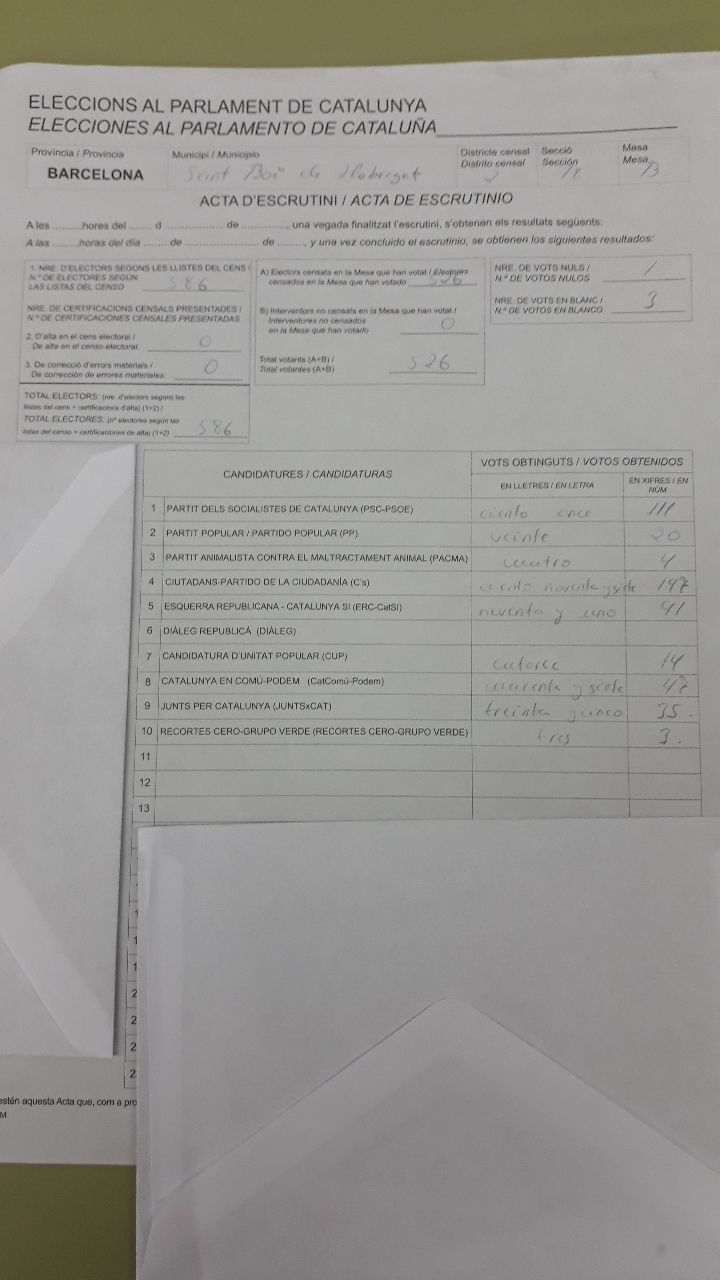 ELECCIONS AL PARLAMENT DE CATALUNYA
ELECCIONES AL PARLAMENTO DE CATALUÑA
Província / Provincia Municipi / Municipio Districte censal Secció Mesa
Distrito censal Sección Mesa
BARCELONA Sant Boi de Llobregat 2 18 B
ACTA D'ESCRUTINI / ACTA DE ESCRUTINIO
A les ..........hores del ....... d ................... de .............., una vegada finalitzat l'escrutini, s'obtenen els resultats següents:
A las .........horas del día ....... de ........................ de ........, y una vez concluido el escrutinio, se obtienen los siguientes resultados:
1. NRE. D'ELECTORS SEGONS LES LLISTES DEL CENS /
N.º DE ELECTORES SEGÚN
LAS LISTAS DEL CENSO 586
NRE. DE CERTIFICACIONS CENSALS PRESENTADES /
N.º DE CERTIFICACIONES CENSALES PRESENTADAS
2. D'alta en el cens electoral /
De alta en el censo electoral: 0
3. De correcció d'errors materials /
De corrección de errores materiales: 0
TOTAL ELECTORS: (nre. d'electors segons les
llistes del cens + certificacions d'alta) (1+2) /
TOTAL ELECTORES: (nº electores según las
listas del censo + certificaciones de alta) (1+2) 586
A) Electors censats en la Mesa que han votat / Electores
censados en la Mesa que han votado 526
B) Interventors no censats en la Mesa que han votat /
Interventores no censados
en la Mesa que han votado 0
Total votants (A+B) /
Total votantes (A+B) 526
NRE. DE VOTS NULS /
N.º DE VOTOS NULOS 1
NRE. DE VOTS EN BLANC /
N.º DE VOTOS EN BLANCO 3
CANDIDATURES / CANDIDATURAS VOTS OBTINGUTS / VOTOS OBTENIDOS
EN LLETRES / EN LETRA EN XIFRES / EN NÚM.
1 PARTIT DELS SOCIALISTES DE CATALUNYA (PSC-PSOE) ciento once 111
2 PARTIT POPULAR / PARTIDO POPULAR (PP) veinte 20
3 PARTIT ANIMALISTA CONTRA EL MALTRACTAMENT ANIMAL (PACMA) cuatro 4
4 CIUTADANS-PARTIDO DE LA CIUDADANÍA (C's) ciento noventa y siete 197
5 ESQUERRA REPUBLICANA - CATALUNYA SÍ (ERC-CatSí) noventa y uno 91
6 DIÀLEG REPUBLICÀ (DIÀLEG)
7 CANDIDATURA D'UNITAT POPULAR (CUP) catorce 14
8 CATALUNYA EN COMÚ-PODEM (CatComú-Podem) cuarenta y siete 47
9 JUNTS PER CATALUNYA (JUNTSxCAT) treinta y cinco 35.
10 RECORTES CERO-GRUPO VERDE (RECORTES CERO-GRUPO VERDE) tres 3.
11
12
13
1
1
1
2
2
2
2
estén aquesta Acta que, com a pro
M